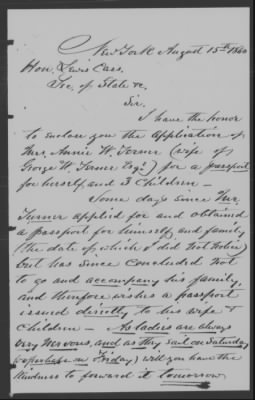 New York August 15th 1860
Hon. Lewis Cass,
Sec. of State &c.
Sir.
I have the honor
to enclose you the application of
Mrs. Annie W. Turner (wife of
George W. Turner Esqr.) for a passport
for herself and 3 Children—
Some days since Mr.
Turner applied for and obtained
a passport for himself and family
(the date of which I did not notice)
but has since concluded not
to go and accompany his family,
and therefore wishes a passport
issued directly to his wife &
Children— As ladies are always
very nervous, and as they sail on Saturday
(or perhaps on Friday) will you have the
kindness to forward it tomorrow.